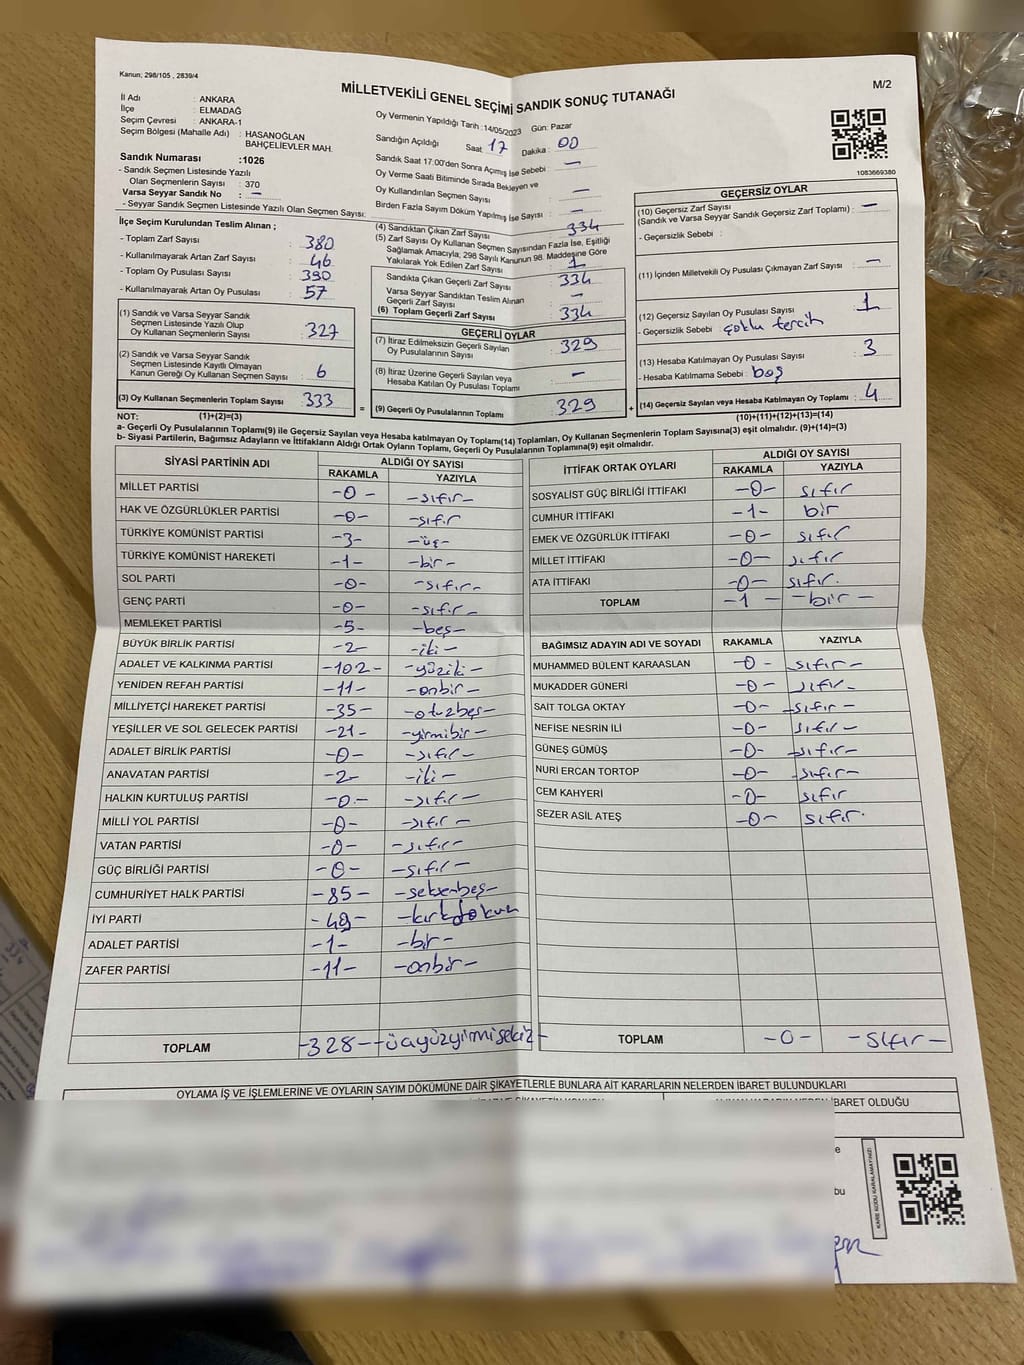 Kanun; 298/105 , 2839/4
MİLLETVEKİLİ GENEL SEÇİMİ SANDIK SONUÇ TUTANAĞI
M/2
İl Adı : ANKARA
İlçe : ELMADAĞ
Seçim Çevresi : ANKARA-1
Seçim Bölgesi (Mahalle Adı) : HASANOĞLAN
BAHÇELİEVLER MAH.
Sandık Numarası :1026
- Sandık Seçmen Listesinde Yazılı
Olan Seçmenlerin Sayısı : 370
Varsa Seyyar Sandık No : –
- Seyyar Sandık Seçmen Listesinde Yazılı Olan Seçmen Sayısı:
Oy Vermenin Yapıldığı Tarih :14/05/2023 Gün: Pazar
Sandığın Açıldığı Saat 17 Dakika : 00
Sandık Saat 17:00'den Sonra Açımış İse Sebebi : –
Oy Verme Saati Bitiminde Sırada Bekleyen ve
Oy Kullandırılan Seçmen Sayısı : –
Birden Fazla Sayım Döküm Yapılmış İse Sayısı : –
1083669380
İlçe Seçim Kurulundan Teslim Alınan ;
- Toplam Zarf Sayısı : 380
- Kullanılmayarak Artan Zarf Sayısı : 46
- Toplam Oy Pusulası Sayısı : 390
- Kullanılmayarak Artan Oy Pusulası : 57
(1) Sandık ve Varsa Seyyar Sandık
Seçmen Listesinde Yazılı Olup
Oy Kullanan Seçmenlerin Sayısı : 327
(2) Sandık ve Varsa Seyyar Sandık
Seçmen Listesinde Kayıtlı Olmayan
Kanun Gereği Oy Kullanan Seçmen Sayısı : 6
(3) Oy Kullanan Seçmenlerin Toplam Sayısı : 333
(4) Sandıktan Çıkan Zarf Sayısı : 334
(5) Zarf Sayısı Oy Kullanan Seçmen Sayısından Fazla İse, Eşitliği
Sağlamak Amacıyla; 298 Sayılı Kanunun 98. Maddesine Göre
Yakılarak Yok Edilen Zarf Sayısı : 1
Sandıkta Çıkan Geçerli Zarf Sayısı : 334
Varsa Seyyar Sandıktan Teslim Alınan
Geçerli Zarf Sayısı : –
(6) Toplam Geçerli Zarf Sayısı : 334
GEÇERLİ OYLAR
(7) İtiraz Edilmeksizin Geçerli Sayılan
Oy Pusulalarının Sayısı : 329
(8) İtiraz Üzerine Geçerli Sayılan veya
Hesaba Katılan Oy Pusulası Toplamı : –
= (9) Geçerli Oy Pusulalarının Toplamı : 329
GEÇERSİZ OYLAR
(10) Geçersiz Zarf Sayısı
(Sandık ve Varsa Seyyar Sandık Geçersiz Zarf Toplamı) : –
- Geçersizlik Sebebi :
(11) İçinden Milletvekili Oy Pusulası Çıkmayan Zarf Sayısı : –
(12) Geçersiz Sayılan Oy Pusulası Sayısı : 1
- Geçersizlik Sebebi : çoklu tercih
(13) Hesaba Katılmayan Oy Pusulası Sayısı : 3
- Hesaba Katılmama Sebebi : boş
+ (14) Geçersiz Sayılan veya Hesaba Katılmayan Oy Toplamı : 4
NOT: (1)+(2)=(3) (10)+(11)+(12)+(13)=(14)
a- Geçerli Oy Pusulalarının Toplamı(9) ile Geçersiz Sayılan veya Hesaba katılmayan Oy Toplamı(14) Toplamları, Oy Kullanan Seçmenlerin Toplam Sayısına(3) eşit olmalıdır. (9)+(14)=(3)
b- Siyasi Partilerin, Bağımsız Adayların ve İttifakların Aldığı Ortak Oyların Toplamı, Geçerli Oy Pusulalarının Toplamına(9) eşit olmalıdır.
SİYASİ PARTİNİN ADI ALDIĞI OY SAYISI
RAKAMLA YAZIYLA
MİLLET PARTİSİ -0- -sıfır-
HAK VE ÖZGÜRLÜKLER PARTİSİ -0- -sıfır
TÜRKİYE KOMÜNİST PARTİSİ -3- -üç-
TÜRKİYE KOMÜNİST HAREKETİ -1- -bir-
SOL PARTİ -0- -sıfır-
GENÇ PARTİ -0- -sıfır-
MEMLEKET PARTİSİ -5- -beş-
BÜYÜK BİRLİK PARTİSİ -2- -iki-
ADALET VE KALKINMA PARTİSİ -102- -yüziki-
YENİDEN REFAH PARTİSİ -11- -onbir-
MİLLİYETÇİ HAREKET PARTİSİ -35- -otuzbeş-
YEŞİLLER VE SOL GELECEK PARTİSİ -21- -yirmibir-
ADALET BİRLİK PARTİSİ -0- -sıfır-
ANAVATAN PARTİSİ -2- -iki-
HALKIN KURTULUŞ PARTİSİ -0- -sıfır-
MİLLİ YOL PARTİSİ -0- -sıfır-
VATAN PARTİSİ -0- -sıfır-
GÜÇ BİRLİĞİ PARTİSİ -0- -sıfır-
CUMHURİYET HALK PARTİSİ -85- -seksenbeş-
İYİ PARTİ -49- -kırkdokuz
ADALET PARTİSİ -1- -bir-
ZAFER PARTİSİ -11- -onbir-
TOPLAM -328- -üçyüzyirmisekiz-
İTTİFAK ORTAK OYLARI ALDIĞI OY SAYISI
RAKAMLA YAZIYLA
SOSYALİST GÜÇ BİRLİĞİ İTTİFAKI -0- sıfır
CUMHUR İTTİFAKI -1- bir
EMEK VE ÖZGÜRLÜK İTTİFAKI -0- sıfır
MİLLET İTTİFAKI -0- sıfır
ATA İTTİFAKI -0- sıfır.
TOPLAM -1- -bir-
BAĞIMSIZ ADAYIN ADI VE SOYADI RAKAMLA YAZIYLA
MUHAMMED BÜLENT KARAASLAN -0- sıfır-
MUKADDER GÜNERİ -0- sıfır-
SAİT TOLGA OKTAY -0- -sıfır-
NEFİSE NESRİN İLİ -0- sıfır-
GÜNEŞ GÜMÜŞ -0- -sıfır-
NURİ ERCAN TORTOP -0- -sıfır-
CEM KAHYERİ -0- sıfır
SEZER ASİL ATEŞ -0- sıfır.
TOPLAM -0- -sıfır-
OYLAMA İŞ VE İŞLEMLERİNE VE OYLARIN SAYIM DÖKÜMÜNE DAİR ŞİKAYETLERLE BUNLARA AİT KARARLARIN NELERDEN İBARET BULUNDUKLARI
İBARET OLDUĞU
KARE KODU KARALAMAYINIZ!